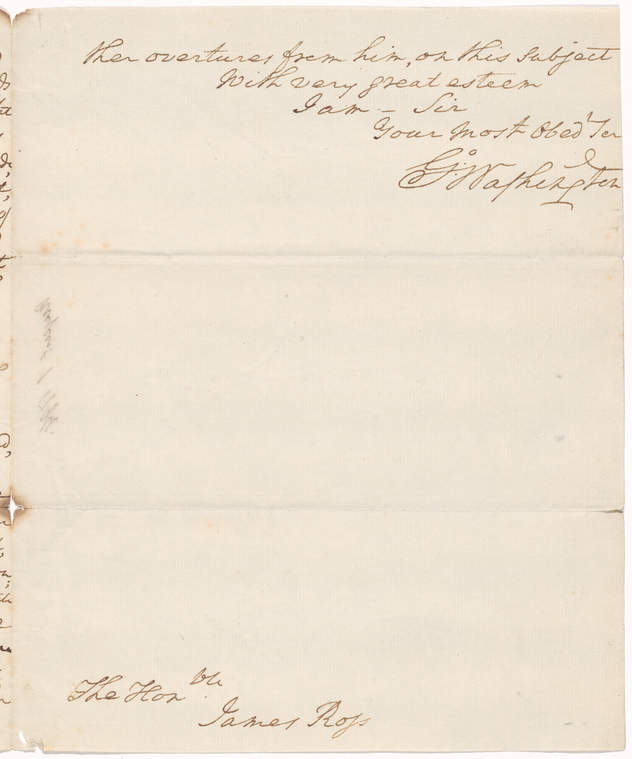 ther overtures from him, on this subject
With very great esteem
I am – Sir
Your Most Obedt Ser
Go: Washington
The Honble
James Ross